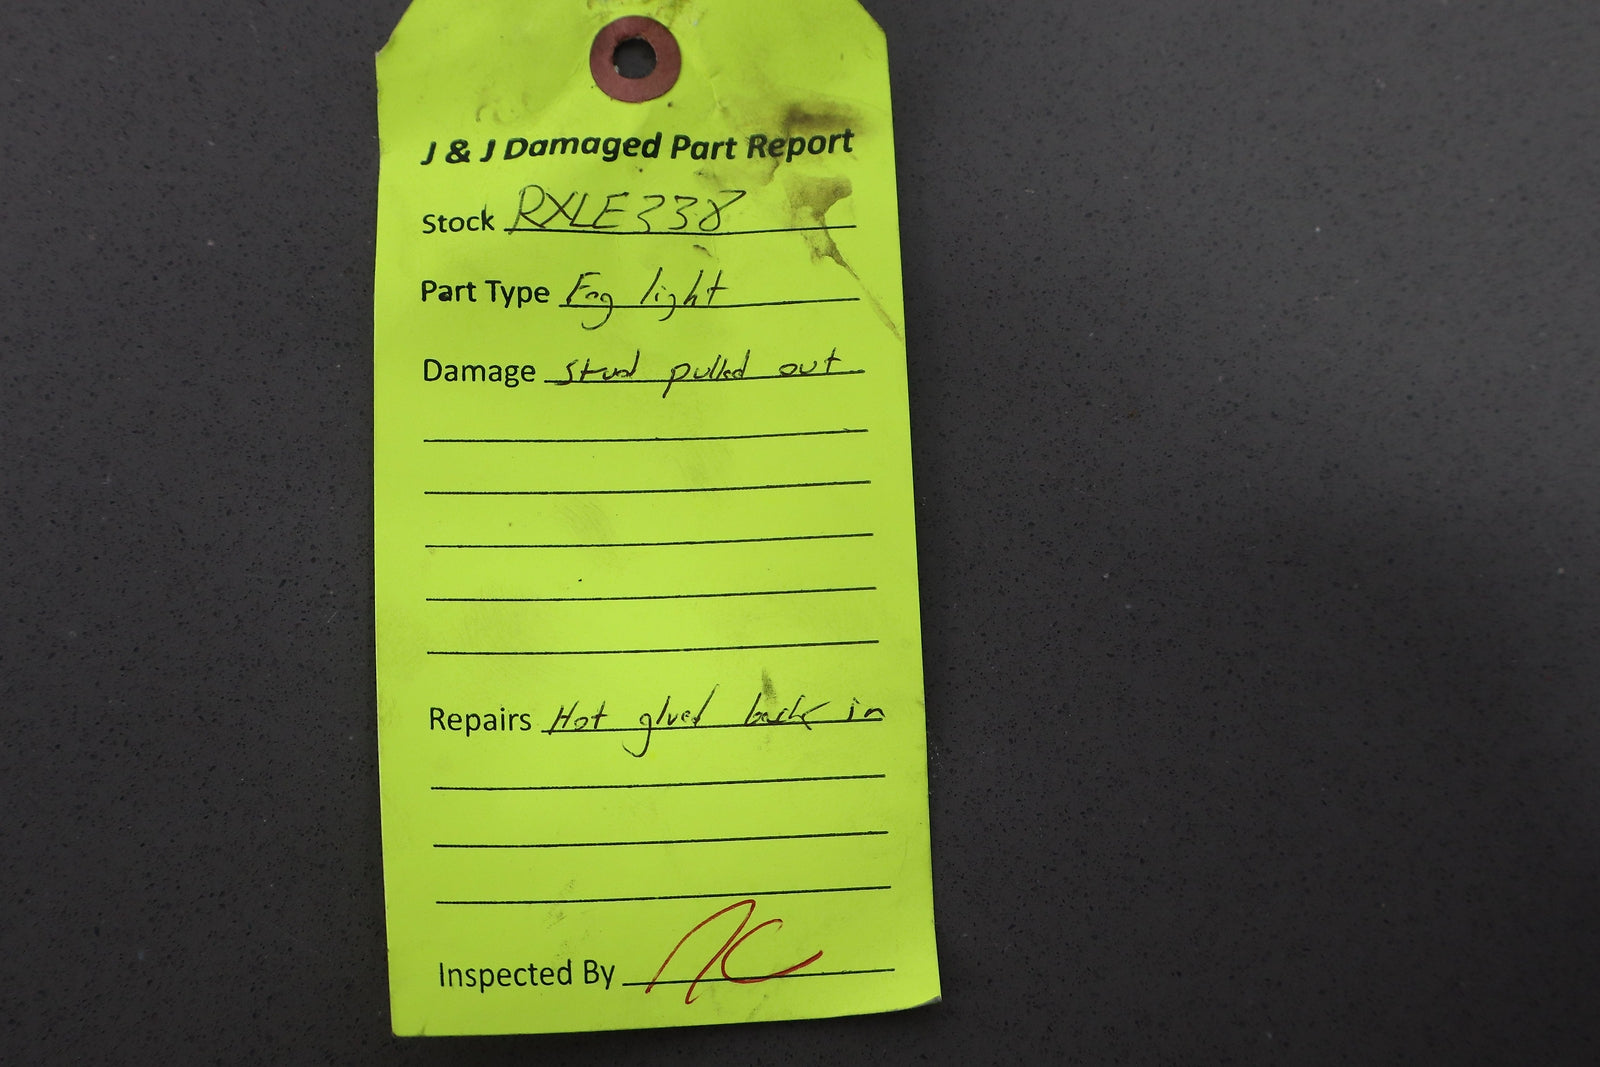 J & J Damaged Part Report
Stock RXLE338
Part Type Fog light
Damage Stud pulled out
Repairs Hot glued back in
Inspected By